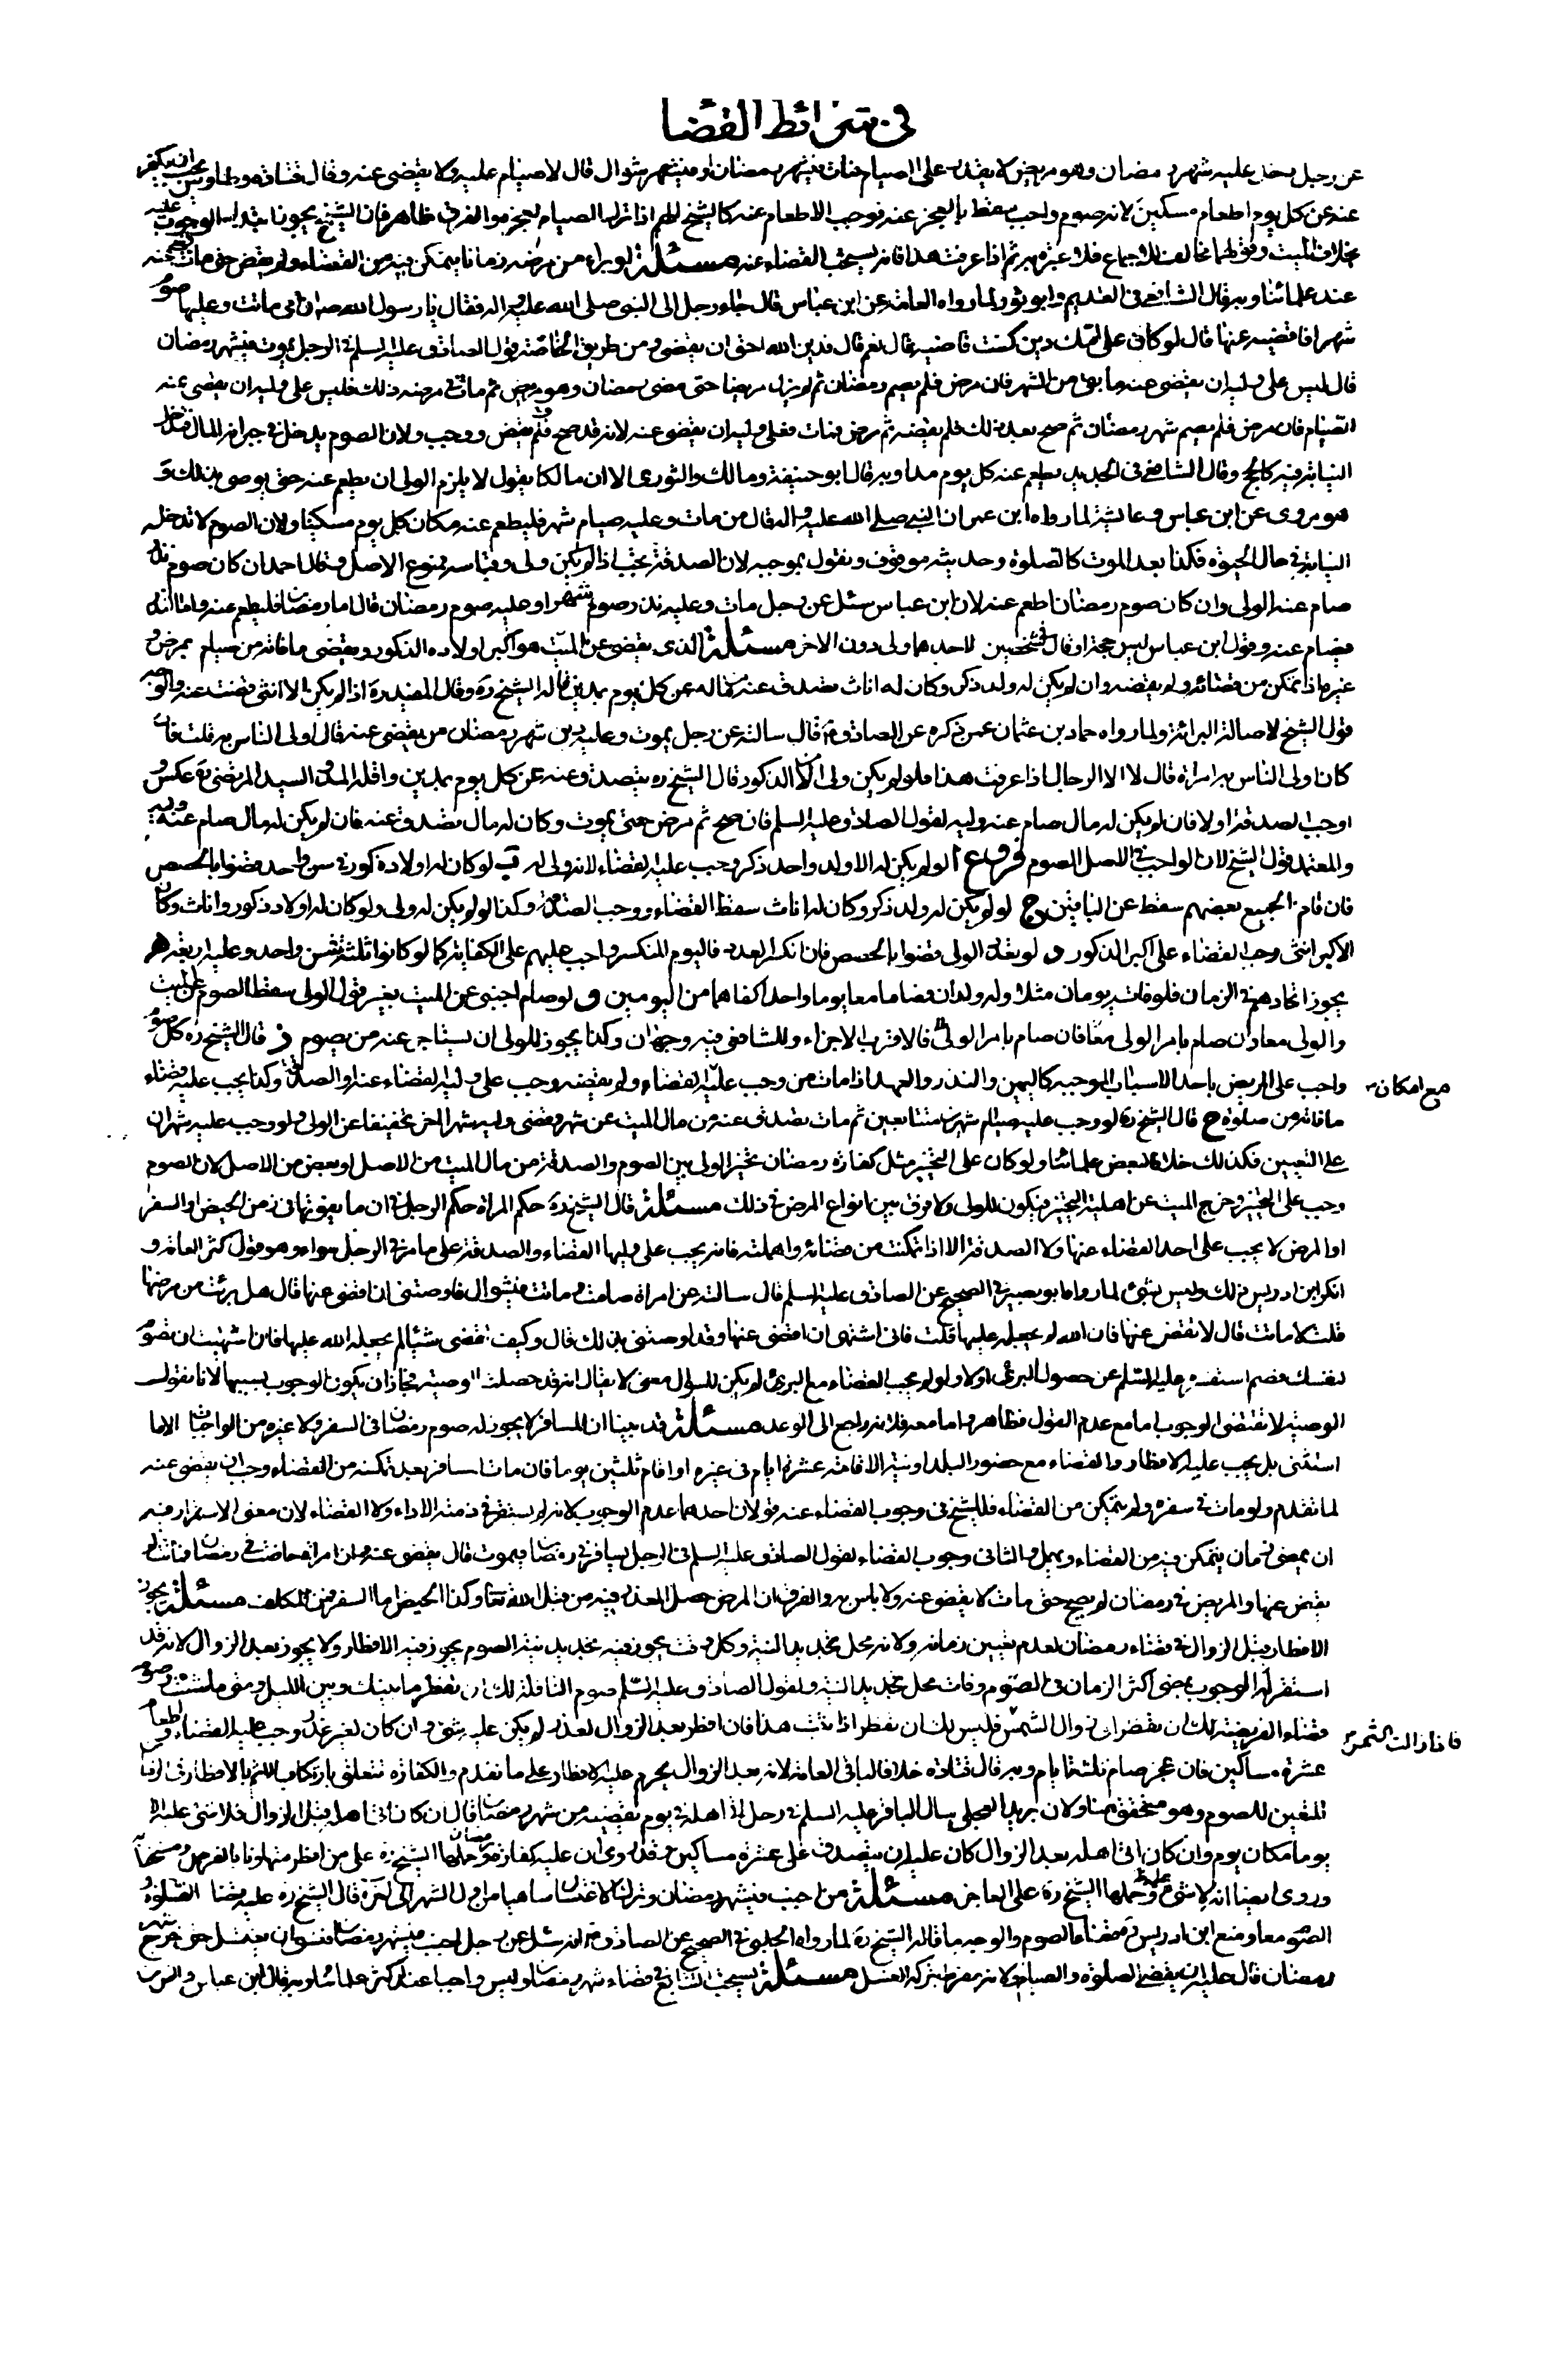 في شرائط القضا
عن رجل يدخل عليه شهر رمضان وهو مريض لا يقدر على الصيام فمات في شهر رمضان او في شهر شوال قال لا صيام عليه ولا يقضى عنه وقال قتادة وطاوس يجب ان يكفر
عنه عن كل يوم اطعام مسكين لانه صوم واجب سقط بالعجز عنه فوجب الاطعام عنه كالشيخ الهم اذا ترك الصيام لعجزه والفرق ظاهر فان الشيخ يجوز ابتداء الوجوب عليه
بخلاف الميت وقولهما مخالف للاجماع فلا عبرة به ثم اذا عرفت هذا فانه يستحب القضاء عنه مسئلة لو برا من مرضه زمانا يتمكن فيه من القضاء ولم يقض حتى مات قضى عنه
عند علمائنا وبه قال الشافعي في القديم وابو ثور لما رواه العامة عن ابن عباس قال جاء رجل الى النبي صلى الله عليه واله فقال يا رسول الله ص ان امي ماتت وعليها صوم
شهر افاقضيه عنها قال لو كان على امك دين كنت قاضيه قال نعم قال فدين الله احق ان يقضى ومن طريق الخاصة قول الصادق عليه السلم في الرجل يموت في شهر رمضان
قال ليس على وليه ان يقضى عنه ما بقى من الشهر فان مرض فلم يصم رمضان ثم لم يزل مريضا حتى مضى رمضان وهو مريض ثم مات في مرضه ذلك فليس على وليه ان يقضى عنه
الصيام فان مرض فلم يصم شهر رمضان ثم صح بعد ذلك فلم يقضه ثم مرض فمات فعلى وليه ان يقضى عنه لانه قد صح فلم يقض ووجب ولان الصوم يدخل في جبرانه المال فتدخل
النيابة فيه كالحج وقال الشافعي في الجديد يطعم عنه كل يوم مدا وبه قال ابو حنيفة ومالك والثوري الا ان مالكا يقول لا يلزم الولى ان يطعم عنه حتى يوصى بذلك و
هو مروى عن ابن عباس وعايشة لما رواه ابن عمر ان النبي صلى الله عليه واله قال من مات وعليه صيام شهر فليطعم عنه مكان كل يوم مسكينا ولان الصوم لا تدخله
النيابة في حال الحيوة فكذا بعد الموت كالصلوة وحديثه موقوف ونقول بموجبه لان الصدقة تجب اذا لم يكن ولى وقياسه ممنوع الاصل وقال احمد ان كان صوم نذر
صام عنه الولى وان كان صوم رمضان اطعم عنه لان ابن عباس سئل عن رجل مات وعليه نذر صوم شهر او عليه صوم رمضان قال اما رمضان فليطعم عنه واما النذر
فيصام عنه وقول ابن عباس ليس حجة او قال في شخصين لاحدهما ولى دون الاخر مسئلة الذى يقضى عن الميت هو اكبر اولاده الذكور ويقضى ما فاته من صيام بمرض و
غيره اذا تمكن من قضائه ولم يقضه وان لم يكن له ولد ذكر وكان له اناث تصدق عنه من ماله عن كل يوم بمدين قاله الشيخ ره وقال المفيد ره اذا لم يكن الا انثى قضت عنه والوجه
قول الشيخ لاصالة البرائة ولما رواه حماد بن عثمان عمن ذكره عن الصادق ع قال سالته عن رجل يموت وعليه دين شهر رمضان من يقضى عنه قال اولى الناس به قلت فان
كان اولى الناس به امراة قال لا الا الرجال اذا عرفت هذا فلو لم يكن ولى من الذكور قال الشيخ ره يتصدق عنه عن كل يوم بمدين واقله المد والسيد المرتضى ره عكس و
اوجب الصدقة اولا فان لم يكن له مال صام عنه وليه لقول الصادق عليه السلم فان صح ثم مرض حتى يموت وكان له مال تصدق عنه فان لم يكن له مال صام عنه وليه
والمعتمد قول الشيخ لان الواجب في الاصل الصوم فروع ا لو لم يكن له الا ولد واحد ذكر وجب عليه القضاء لانه ولى له ب لو كان له اولاد ذكور في سن واحد قضوا بالحصص
فان قام بالجميع بعضهم سقط عن الباقين ج لو لم يكن له ولد ذكر وكان له اناث سقط القضاء ووجب الصدقة وكذا لو لم يكن له ولى ولو كان له اولاد ذكور واناث وكان
الاكبر انثى وجب القضاء على اكبر الذكور د لو تعدد الولى قضوا بالحصص فان انكسر العدد فاليوم المنكسر واجب عليهم على الكفاية كما لو كانوا ثلثة في سن واحد وعليه اربعة ه
يجوز اتحادهم في الزمان فلو فاته يومان مثلا وله ولدان فصاما معا يوما واحدا كفاهما من اليومين و لو صام اجنبى عن الميت بغير قول الولى سقط الصوم عن الميت
والولى معا وان صام بامر الولى معا فان صام بامر الولى فالاقرب الاجزاء وللشافعى فيه وجهان وكذا يجوز للولى ان يستاجر عنه من يصوم ز قال الشيخ ره كل صوم
واجب على المريض باحد الاسباب الموجبة كاليمين والنذر والعهد اذا مات من وجب عليه القضاء ولم يقضه وجب على وليه القضاء عنه او الصدقة وكذا يجب عليه قضاء
مع امكانه
ما فاته من صلوة ح قال الشيخ ره لو وجب عليه صيام شهرين متتابعين ثم مات تصدق عنه من مال الميت عن شهر وقضى وليه شهرا اخر تخفيفا عن الولى ولو وجب عليه شهران
على التعيين فكذلك خلافا لبعض علمائنا ولو كان على التخيير مثل كفارة رمضان تخير الولى بين الصوم والصدقة من مال الميت من الاصل او بعض من الاصل لان الصوم
وجب على التخيير وخرج الميت عن اهلية التخيير فيكون للولى ولا فرق بين انواع المرض في ذلك مسئلة قال الشيخ ره حكم المراة حكم الرجل في ان ما يفوتها في زمن الحيض او السفر
او المرض لا يجب على احد القضاء عنها ولا الصدقة الا اذا تمكنت من قضائه واهملته فانه يجب على وليها القضاء والصدقة على ما مر في الرجل سواء وهو قول اكثر العامة و
انكر ابن ادريس ذلك وليس بشئ لما رواه ابو بصير في الصحيح عن الصادق عليه السلم قال سالته عن امراة صامت وماتت في شوال فاوصتنى ان اقضى عنها قال هل برئت من مرضها
قلت لا ماتت قال لا تقض عنها فان الله لم يجعله عليها قلت فانى اشتهى ان اقضى عنها وقد اوصتنى بذلك قال وكيف تقضى شيئا لم يجعله الله عليها فان اشتهيت ان تصوم
لنفسك فصم استفسره عليه السلم عن حصول البرء اولا ولو لم يجب القضاء مع البرء لم يكن للسؤال معنى لا يقال انه قد حصلت الوصية فجاز ان يكون الوجوب بسببها لانا نقول
الوصية لا تقتضى الوجوب اما مع عدم القبول فظاهر واما معه فلانه راجع الى الوعد مسئلة قد بينا ان المسافر لا يجوز له صوم رمضان في السفر ولا غيره من الواجبات الا ما
استثنى بل يجب عليه الافطار والقضاء مع حضور البلد او نية الاقامة عشرة ايام في غيره او اقام ثلثين يوما فان مات المسافر بعد تمكنه من القضاء وجب ان يقضى عنه
لما تقدم ولو مات في سفره ولم يتمكن من القضاء فللشيخ في وجوب القضاء عنه قولان احدهما عدم الوجوب لانه لم يستقر في ذمته الاداء ولا القضاء لان معنى الاستقرار فيه
ان يمضى زمان يتمكن فيه من القضاء ويهمل والثانى وجوب القضاء لقول الصادق عليه السلم في الرجل يسافر في رمضان فيموت قال يقضى عنه وان امراة حاضت في رمضان فماتت لم
يقض عنها والمريض في رمضان لم يصح حتى مات لا يقضى عنه ولا باس به والفرق ان المرض حصل العذر فيه من قبل الله تعالى وكذا الحيض اما السفر فمن المكلف مسئلة يجوز
الافطار قبل الزوال في قضاء رمضان لعدم تعيين زمانه ولانه محل تجديد النية وكل وقت يجوز فيه تجديد نية الصوم يجوز فيه الافطار ولا يجوز بعد الزوال لانه قد
استقر له الوجوب بمضى اكثر الزمان في الصوم وفات محل تجديد النية ولقول الصادق عليه السلم صوم النافلة لك ان تفطر ما بينك وبين الليل ومتى ما شئت وصوم
قضاء الفريضة لك ان تفطر الى زوال الشمس فليس لك ان تفطر اذا ثبت هذا فان افطر بعد الزوال لعذر لم يكن عليه شئ وان كان لغير عذر وجب عليه القضاء واطعام
فاذا زالت الشمس
عشرة مساكين فان عجز صام ثلثة ايام وبه قال قتادة خلافا لباقى العامة لانه بعد الزوال يحرم عليه الافطار على ما تقدم والكفارة تتعلق بارتكاب الاثم بالافطار في الزمان
المتعين للصوم وهو متحقق هنا ولان بريد العجلى سال الباقر عليه السلم في رجل اتى اهله في يوم يقضيه من شهر رمضان قال ان كان اتى اهله قبل الزوال فلا شئ عليه الا
يوما مكان يوم وان كان اتى اهله بعد الزوال كان عليه ان يتصدق على عشرة مساكين وقد روى ان عليه كفارة رمضان وحملها الشيخ ره على من افطر متهاونا بالفرض ومستخفا به
وروى ايضا انه لا شئ عليه وحملها الشيخ ره على العاجز مسئلة من اجنب في شهر رمضان وترك الاغتسال ساهيا من اول الشهر الى اخره قال الشيخ ره عليه قضاء الصلوة و
الصوم معا ومنع ابن ادريس ره قضاء الصوم والوجه ما قاله الشيخ ره لما رواه الحلبى في الصحيح عن الصادق ع انه سئل عن رجل اجنب في شهر رمضان فنسى ان يغتسل حتى خرج شهر
رمضان قال عليه ان يقضى الصلوة والصيام ولانه مفرط بترك الغسل مسئلة يستحب التتابع في قضاء شهر رمضان وليس واجبا عند اكثر علمائنا وبه قال ابن عباس وانس بن